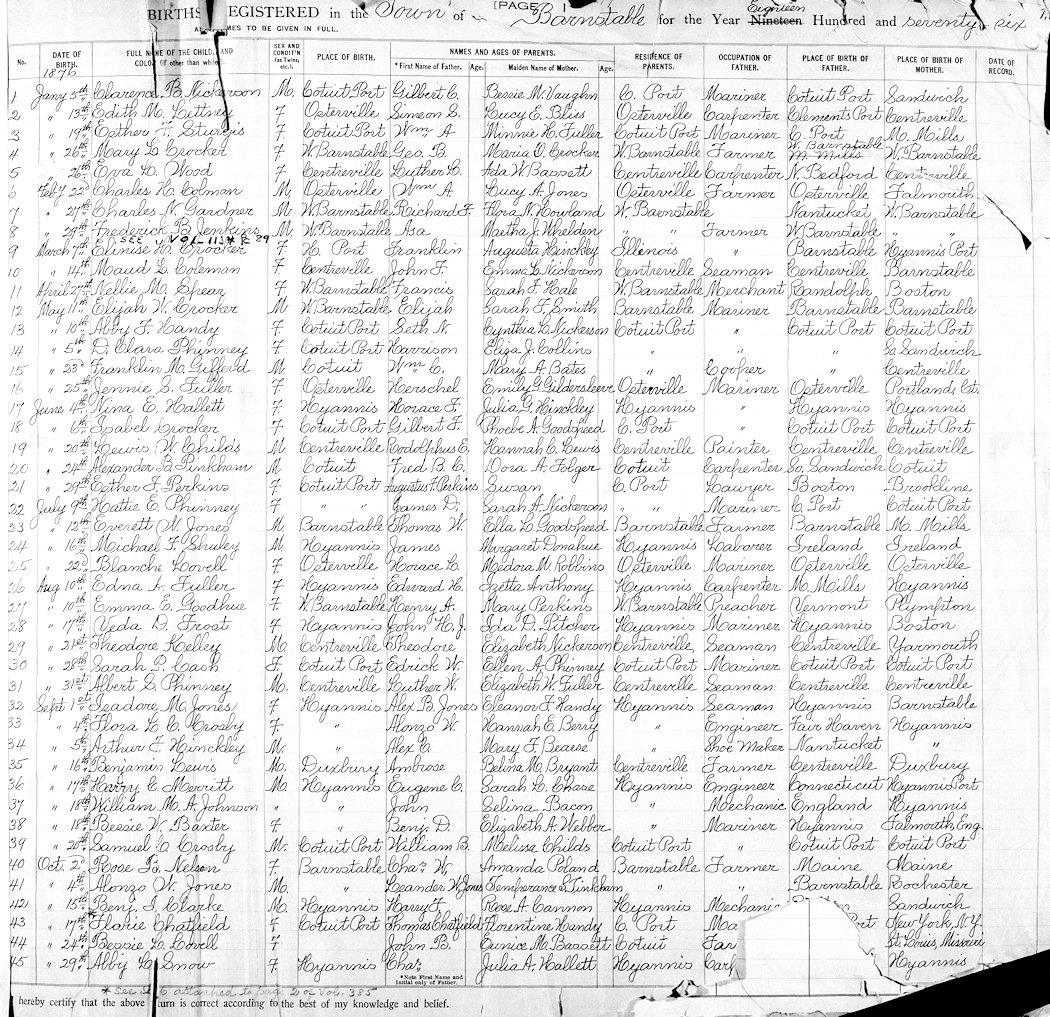 [PAGE 1
BIRTHS REGISTERED in the Town of Barnstable for the Year Eighteen Nineteen Hundred and seventy six
TO BE GIVEN IN FULL.
No. DATE OF BIRTH. FULL NAME OF THE CHILD, AND COLOR (if other than white). SEX AND CONDIT'N (as Twins, etc.). PLACE OF BIRTH. NAMES AND AGES OF PARENTS. *First Name of Father. Age. Maiden Name of Mother. Age. RESIDENCE OF PARENTS. OCCUPATION OF FATHER. PLACE OF BIRTH OF FATHER. PLACE OF BIRTH OF MOTHER. DATE OF RECORD.
1876
1 Jany 5th Clarence B. Nickerson M. Cotuit Port Gilbert C. Bessie M. Vaughn C. Port Mariner Cotuit Port Sandwich
2 " 13th Edith M. Littney F Osterville Simeon S. Lucy E. Bliss Osterville Carpenter Clements Port Centreville
3 " 19th Esther F. Sturgis F Cotuit Port Wm A Minnie H. Fuller Cotuit Port Mariner C. Port M. Mills
4 " 26th Mary L. Crocker F W. Barnstable Geo. B. Maria O. Crocker W. Barnstable Farmer W. Barnstable M. Mills W. Barnstable
5 " 26th Eva L. Wood F Centreville Luther L. Ada W. Bassett Centreville Carpenter N. Bedford Centreville
6 Feby 22d Charles H. Colman M. Osterville Wm A Lucy A. Jones Osterville Farmer Osterville Falmouth
7 " 27th Charles N. Gardner M. W. Barnstable Richard F. Flora N. Howland W. Baenstable Nantucket W. Barnstable
8 " 29th Frederick B. Jenkins M. W. Barnstable Asa Martha J. Whelden " " Farmer W. Barnstable "
SEE VOL 113 # P. 89
9 March 7th Elinise H. Crocker F H. Port Franklin Augusta Hinckley Illinois " Barnstable Hyannis Port
10 " 14th Maud L. Coleman F Centreville John F. Emma L. Nickerson Centreville Seaman Centreville Barnstable
11 April 27th Nellie M. Spear F W. Barnstable Francis Sarah F. Hale W. Barnstable Merchant Randolph Boston
12 May 11th Elijah W. Crocker M W. Barnstable Elijah Sarah F. Smith Barnstable Mariner Barnstable Barnstable
13 " 10th Abby F. Handy F Cotuit Port Seth N. Cynthia L. Nickerson Cotuit Port " Cotuit Port Cotuit Port
14 " 5th D. Clara Phinney F Cotuit Port Harrison Eliza J. Collins " " " So. Sandwich
15 " 23d Franklin M. Gifford M Cotuit Wm C. Mary A. Bates " Cooper " Centreville
16 " 25th Jennie S. Fuller F Osterville Herschel Emily G. Gildersleeve Osterville Mariner Osterville Portland, Ct.
17 June 4th Nina E. Hallett F Hyannis Horace F. Julia G. Hinckley Hyannis " Hyannis Hyannis
18 " 6th Isabel Crocker F Cotuit Port Gilbert F. Phoebe A. Goodspeed C. Port " Cotuit Port Cotuit Port
19 " 20th Lewis W. Childs M. Centreville Rodolphus E. Hannah C. Lewis Centreville Painter Centreville Centreville
20 " 24th Alexander B. Tinkham M Cotuit Fred B. C. Dora A. Folger Cotuit Carpenter So. Sandwich Cotuit
21 " 29th Esther F. Perkins F Cotuit Port Augustus F. Perkins Susan C. Port Lawyer Boston Brookline
22 July 9th Hattie E. Phinney F " " James D. Sarah A. Nickerson " " Mariner C. Port Cotuit Port
23 " 12th Everett W. Jones M. Barnstable Thomas W. Ella L. Goodspeed Barnstable Farmer Barnstable M. Mills
24 " 16th Michael F. Shuley M. Hyannis James Margaret Donahue Hyannis Laborer Ireland Ireland
25 " 22d Blanche Lovell F Osterville Horace L. Medora M. Robbins Osterville Mariner Osterville Osterville
26 Aug 10th Edna A. Fuller F Hyannis Edward H. Izetta Anthony Hyannis Carpenter M. Mills Hyannis
27 " 10th Emma E. Goodhue F. W. Barnstable Henry A. Mary Perkins W. Barnstable Preacher Vermont Plympton
28 " 17th Veda D. Frost F Hyannis John H. J. Ida D. Pitcher Hyannis Mariner Hyannis Boston
29 " 21st Theodore Kelley M. Centreville Theodore Elizabeth Nickerson Centreville Seaman Centreville Yarmouth
30 " 28th Sarah P. Cash F. Cotuit Port Edrick W. Ellen A. Phinney Cotuit Port Mariner Cotuit Port Cotuit Port
31 " 31st Albert S. Phinney M. Centreville Luther W. Elizabeth W. Fuller Centreville Seaman Centreville Centreville
32 Sept 1st Isadore M. Jones F Hyannis Alex B. Jones Eleanor F. Handy Hyannis Seaman Hyannis Barnstable
33 " 4th Flora L. C. Crosby F. " Alonzo W. Hannah E. Berry " Engineer Fair Haven Hyannis
34 " 5th Arthur F. Hinckley M. " Alex C Mary F. Bearse " Shoe Maker Nantucket "
35 " 16th Benjamin Lewis M. Duxbury Ambrose Belina M. Bryant Centreville Farmer Centreville Duxbury
36 " 17th Harry E. Merritt M. Hyannis Eugene C. Sarah L. Chase Hyannis Engineer Connecticut Hyannis Port
37 " 18th William M. A. Johnson " " John Selina Bacon " Mechanic England Hyannis
38 " 18th Bessie W. Baxter F. " Benj. D. Elizabeth A. Webber " Mariner Hyannis Falmouth, Eng.
39 " 20th Samuel C. Crosby M. Cotuit Port William B. Melissa Childs Cotuit Port " Cotuit Port Cotuit Port
40 Oct. 2d Rose B. Nelson F. Barnstable Chas. W. Amanda Poland Barnstable Farmer Maine Maine
41 " 4th Alonzo W. Jones M. " Leander W. Jones Temperance S. Tinkham " " Barnstable Rochester
42 " 15th Benj. I. Clarke M. Hyannis Harry F. Rose A. Cannon Hyannis Mechani Sandwich
43 " 17th Florie Chatfield F Cotuit Port Thomas Chatfield Florentine Handy C. Port Ma Port New York, N.Y.
44 " 24th Bessie L. Lovell F " John B. Eunice M. Bassett Cotuit Far St. Louis, Missouri
45 " 29th Abby L. Snow F. Hyannis Chas. Julia A. Hallett Hyannis Carp Hyannis
*Note First Name and Initial only of Father.
* See attached to page 2 of Vol. 385
hereby certify that the above return is correct according to the best of my knowledge and belief.